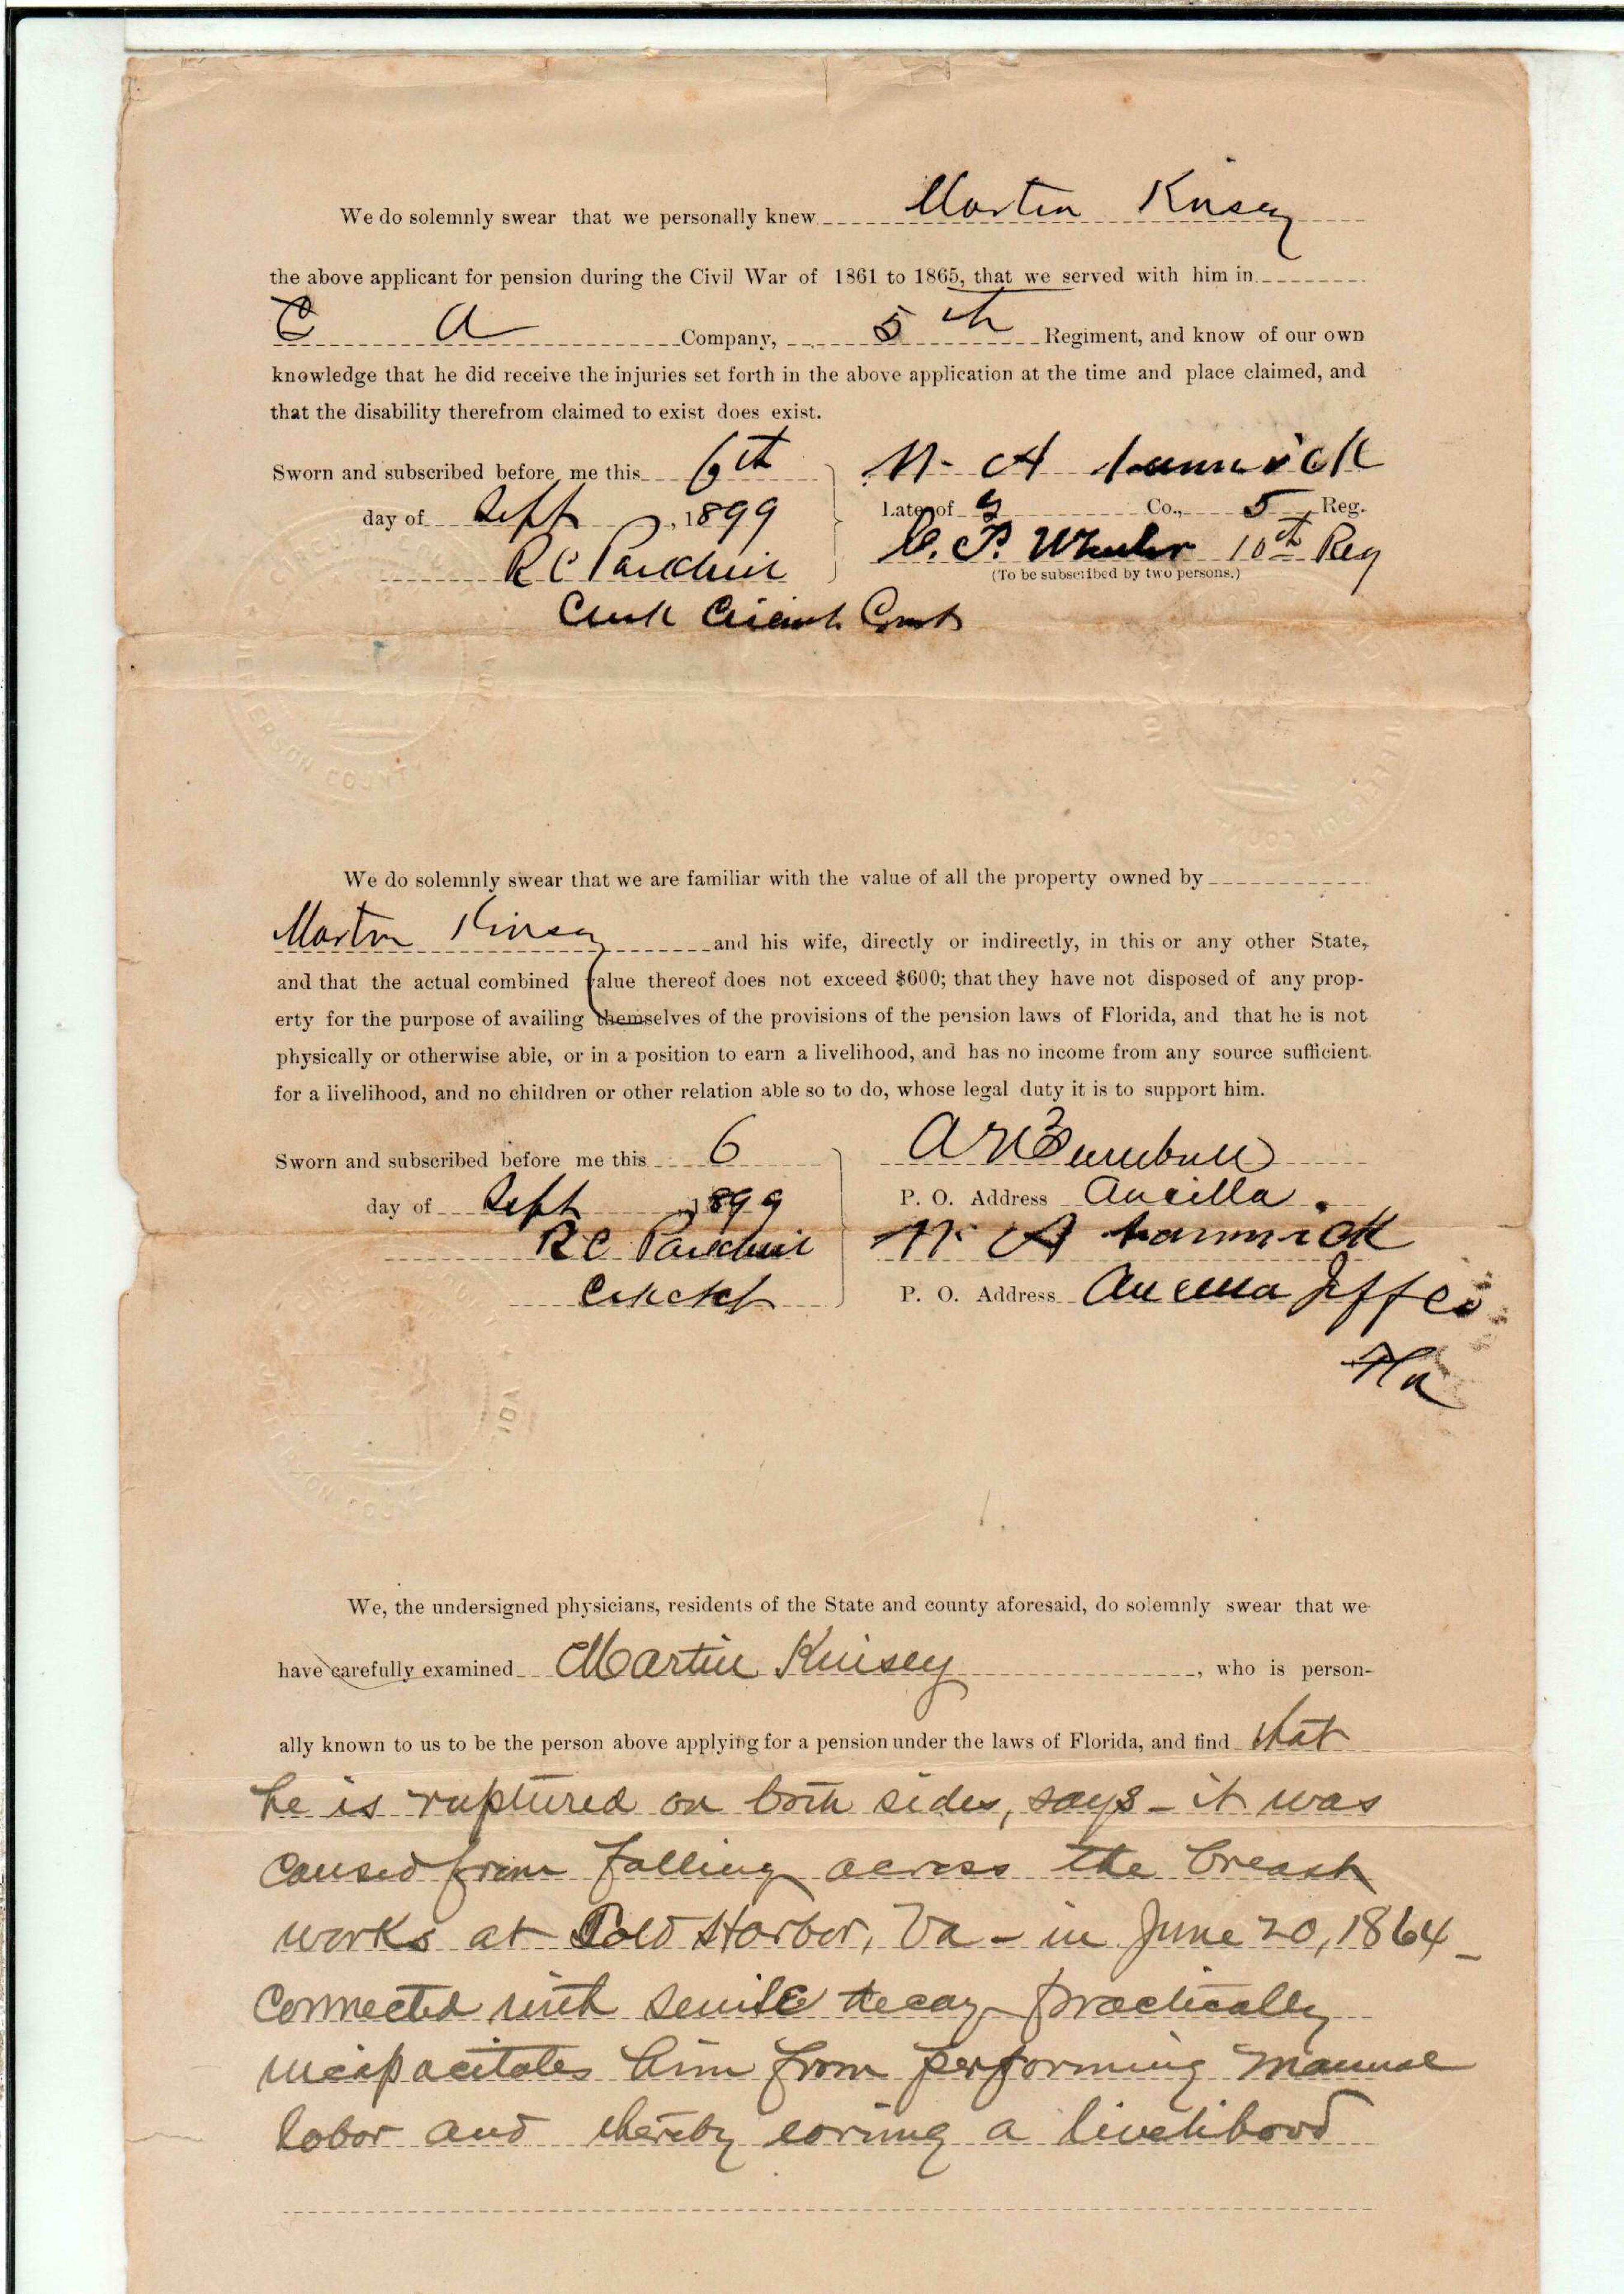 We do solemnly swear that we personally knew Martin Kinsey
the above applicant for pension during the Civil War of 1861 to 1865, that we served with him in
C a Company, 5th Regiment, and know of our own
knowledge that he did receive the injuries set forth in the above application at the time and place claimed, and
that the disability therefrom claimed to exist does exist.
Sworn and subscribed before me this 6th
day of Sept, 1899
R C Parkhill
Clerk Circuit Court
N. A
Late of Co., 5 Reg.
C. P. Wheeler 10th Reg
(To be subscribed by two persons.)
We do solemnly swear that we are familiar with the value of all the property owned by
Martin Kinsey and his wife, directly or indirectly, in this or any other State,
and that the actual combined value thereof does not exceed $600; that they have not disposed of any prop-
erty for the purpose of availing themselves of the provisions of the pension laws of Florida, and that he is not
physically or otherwise able, or in a position to earn a livelihood, and has no income from any source sufficient
for a livelihood, and no children or other relation able so to do, whose legal duty it is to support him.
Sworn and subscribed before me this 6
day of Sept 1899
R C Parkhill
P. O. Address Aucilla.
N. A
P. O. Address Aucilla Jeffco
Fla
We, the undersigned physicians, residents of the State and county aforesaid, do solemnly swear that we
have carefully examined Martin Kinsey, who is person-
ally known to us to be the person above applying for a pension under the laws of Florida, and find that
he is ruptured on both sides, says - it was
caused from falling across the breast
works at Cold Harbor, Va - in June 20, 1864 -
Connected with senile decay practically
incapacitates him from performing manual
labor and thereby earning a livelihood